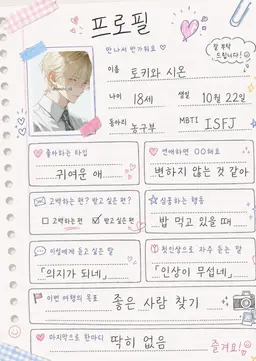 프로필
만나서 반가워요♡
잘 부탁
드립니다!
이름 토키와 시온
나이 18세 생일 10월 22일
동아리 농구부 MBTI ISFJ
좋아하는 타입
귀여운 애
연애하면 OO해요
변하지 않는 것 같아
고백하는 편? 받고 싶은 편?
고백하는 편 받고 싶은 편
심쿵하는 행동
밥 먹고 있을 때
이성에게 듣고 싶은 말
「의지가 되네」
첫인상으로 자주 듣는 말
「인상이 무섭네」
이번 여행의 목표 좋은 사람 찾기
마지막으로 한마디 딱히 없음
즐겨요!